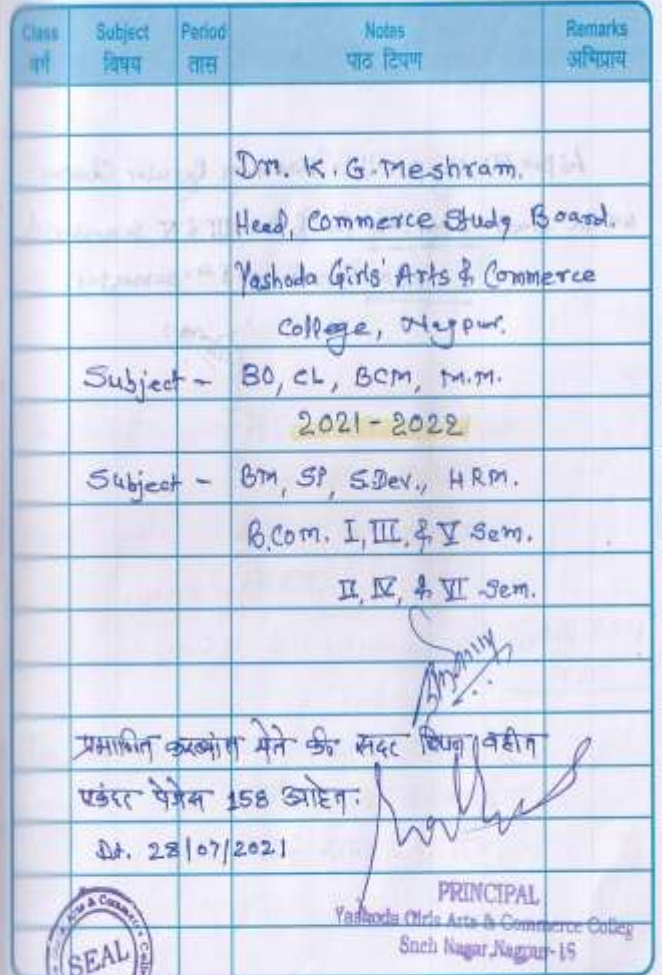 Class Subject Period Notes Remarks
वर्ग विषय तास पाठ टिपण अभिप्राय
Dr. K. G. Meshram.
Head, Commerce Study Board.
Yashoda Girls' Arts & Commerce
College, Nagpur.
Subject - BO, CL, BCM, M.M.
2021-2022
Subject - BM, SP, S.Dev., HRM.
B.Com. I, III, & V Sem.
II, IV, & VI Sem.
प्रमाणित करण्यांत येते की सदर टिपण वहीत
एकंदर पेजेस 158 आहेत.
Dt. 28/07/2021
PRINCIPAL
Yashoda Girls Arts & Commerce Colleg
Sneh Nagar, Nagpur-15
SEAL